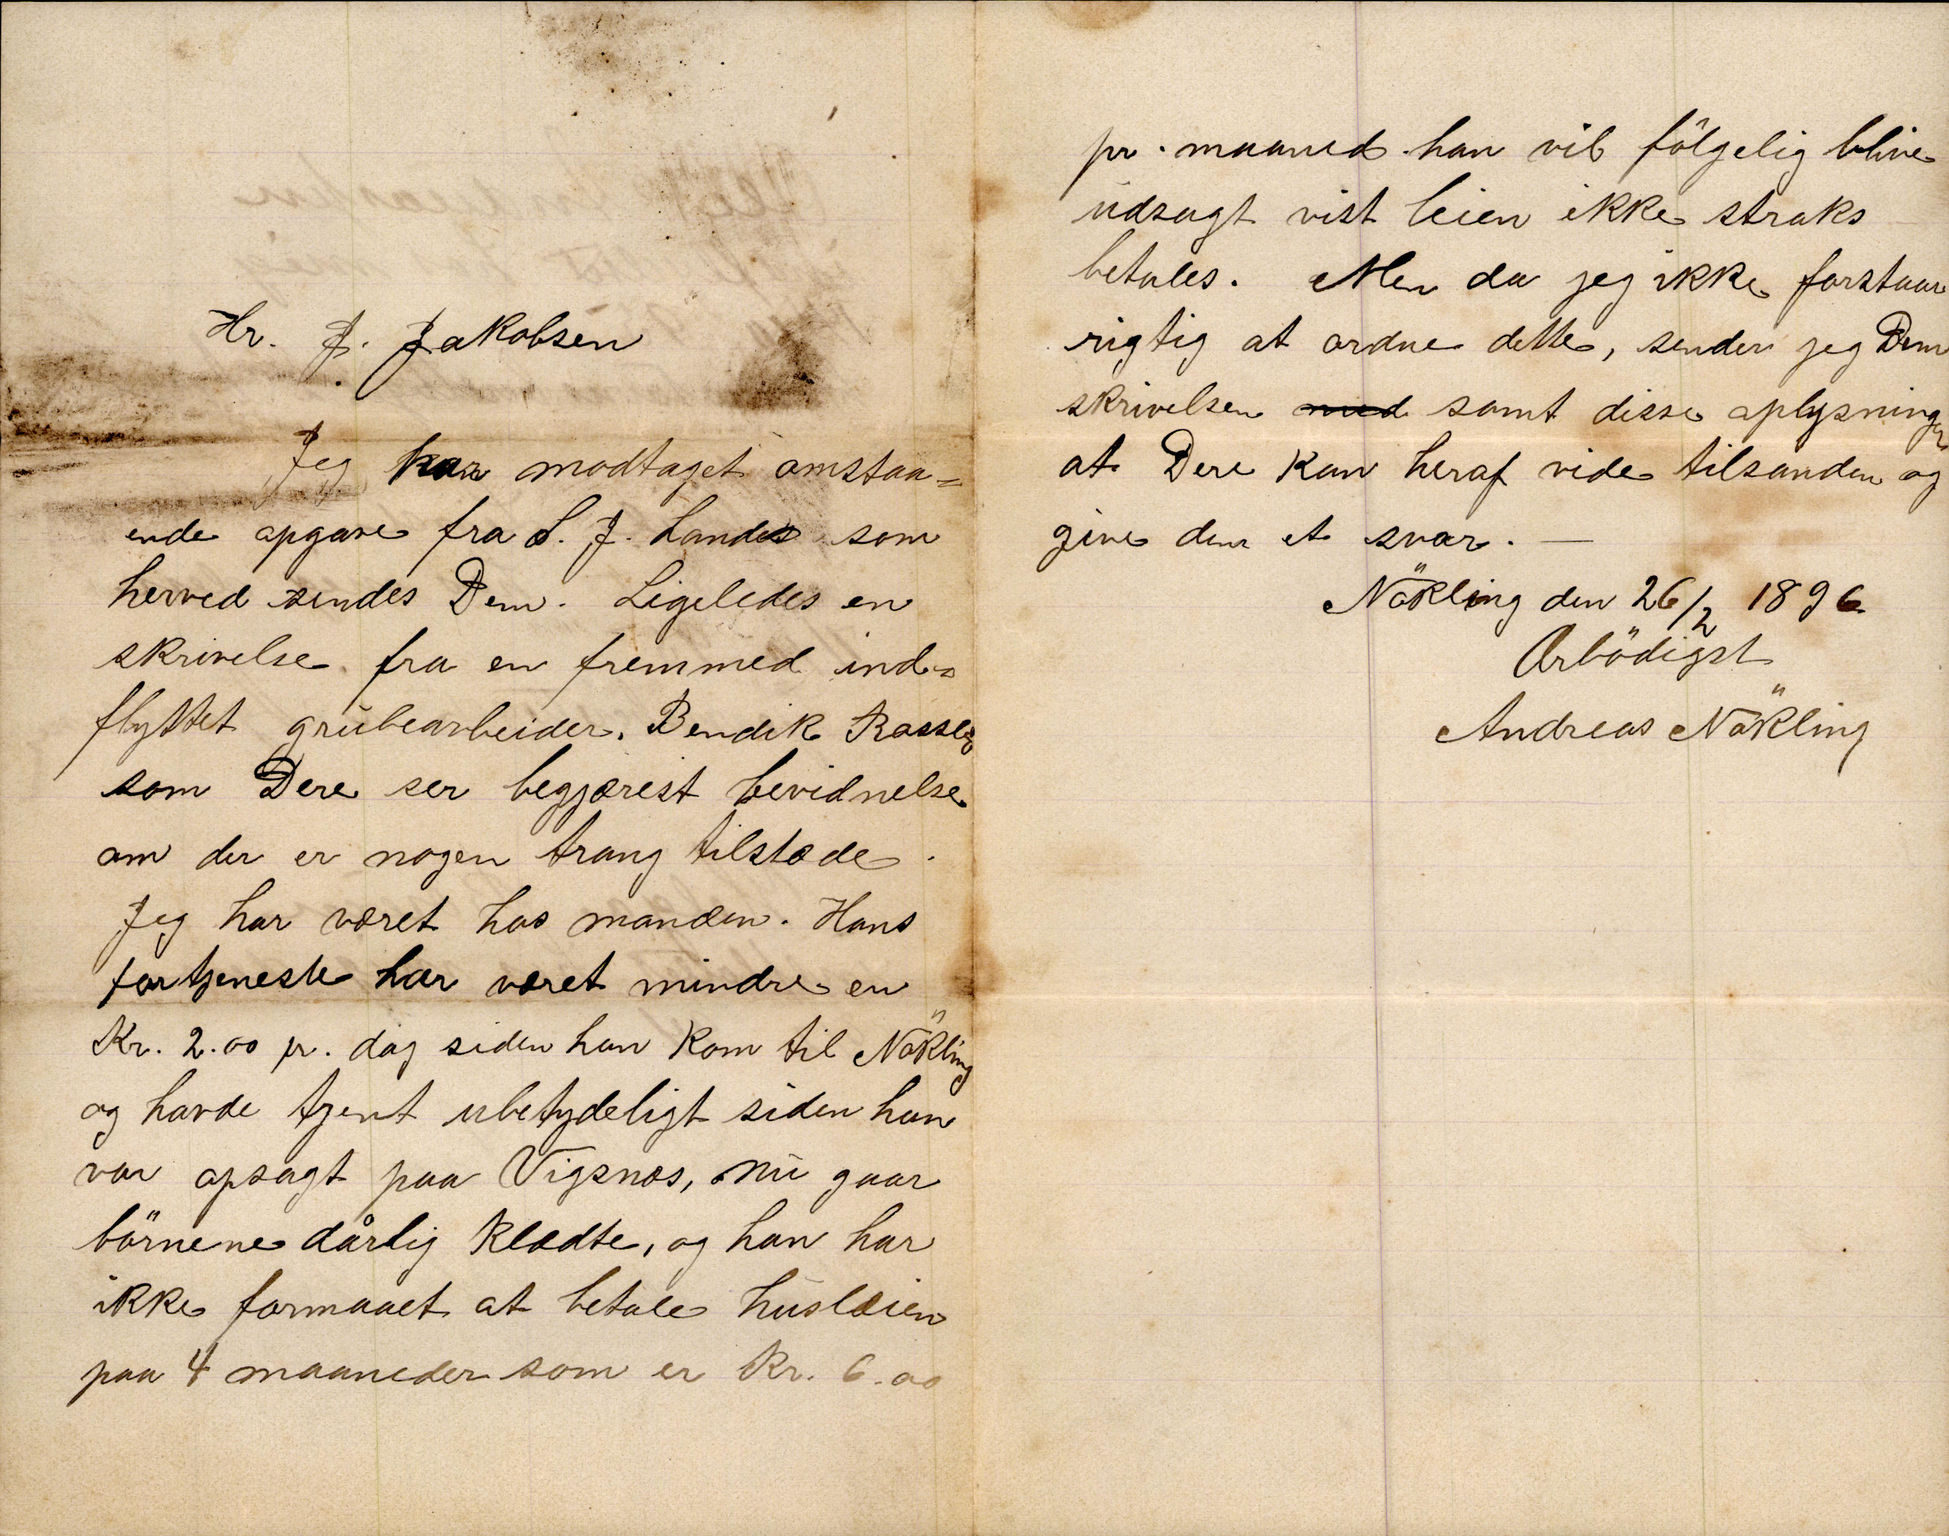 Hr. J. Jakobsen
Jeg har modtaget omstaa=
ende opgave fra S. J. Landes som
herved sendes Dem. Ligeledes en
skrivelse fra en fremmed ind=
flyttet grubearbeider. Bendik
som Dere ser begjærest bevidnelse
om der er nogen trang tilstæde.
Jeg har været hos manden. Hans
fortjeneste har været mindre en
Kr. 2.00 pr. dag siden han kom til Nökling
og havde tjent ubetydeligt siden han
var opsagt paa Vigsnæs, nu gaar
börnene dårlig klædte, og han har
ikke formaaet at betale huslæien
paa 4 maaneder som er Kr. 6.00
pr. maaned han vil fölgelig blive
udsagt vist leien ikke straks
betales. Men da jeg ikke forstaar
rigtig at ordne dette, sender jeg Dem
skrivelsen med samt disse oplysninger
at Dere kan heraf vide tilstanden og
give dem et svar. —
Nökling den 26/2 1896
Ærbödigst
Andreas Nökling